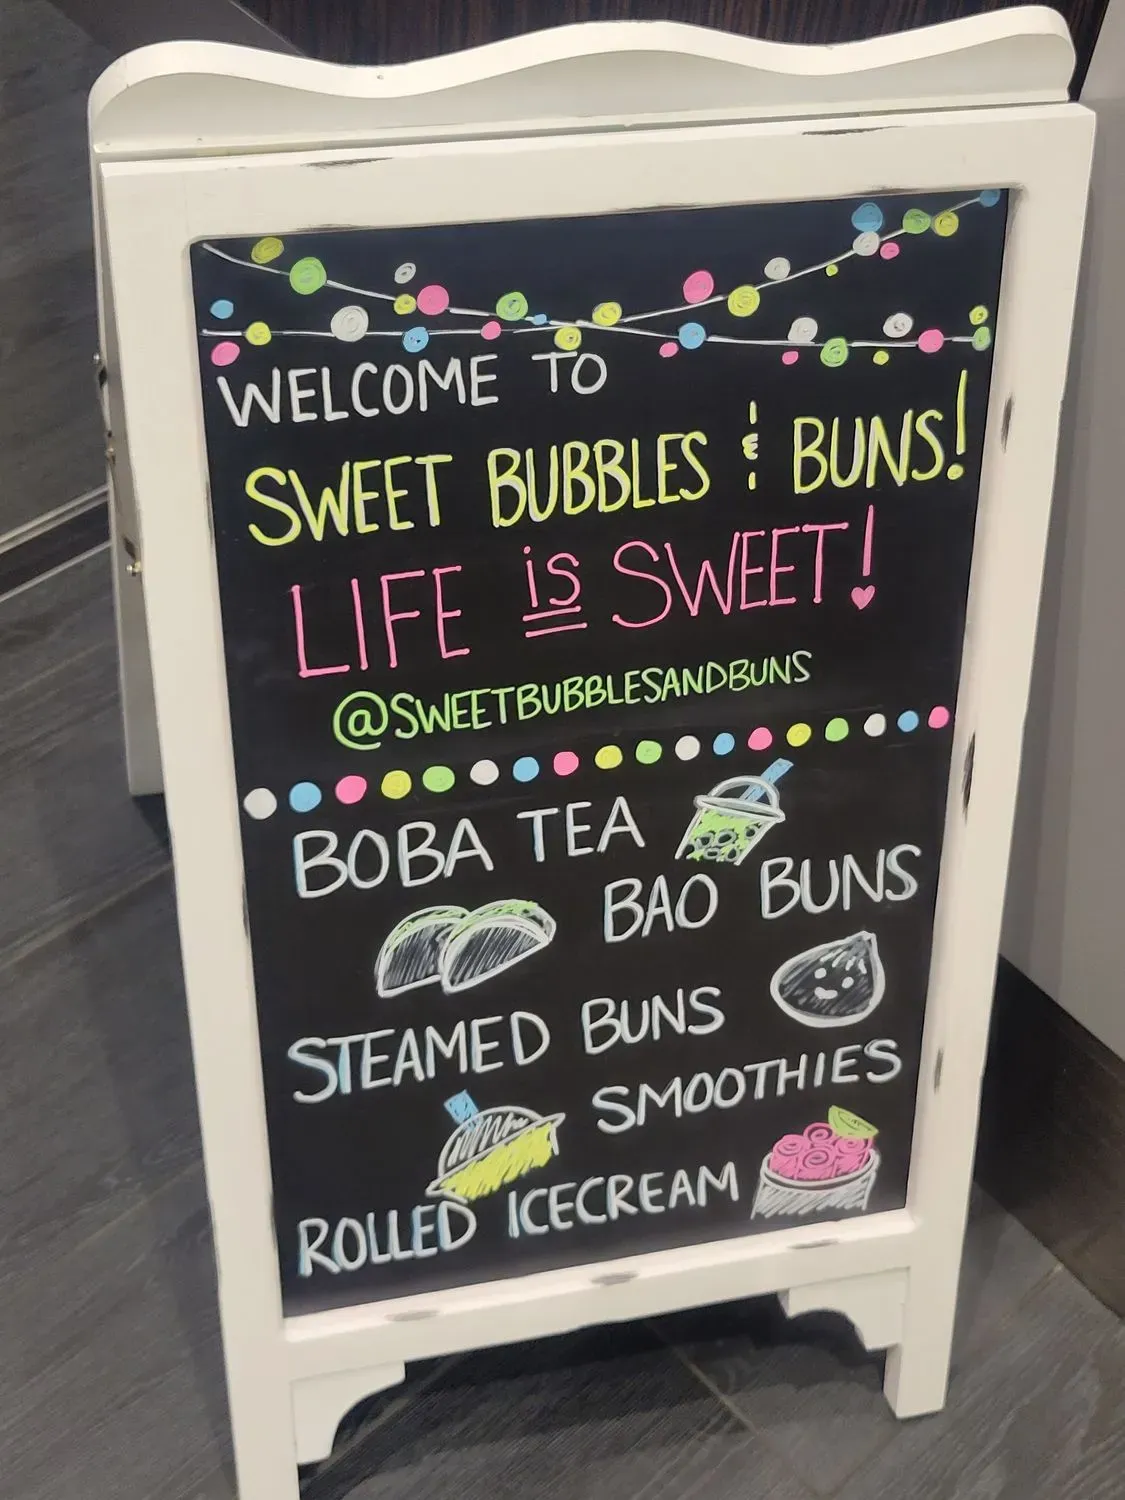 WELCOME TO
SWEET BUBBLES & BUNS!
LIFE is SWEET!
@SWEETBUBBLESANDBUNS
BOBA TEA
BAO BUNS
STEAMED BUNS
SMOOTHIES
ROLLED ICECREAM